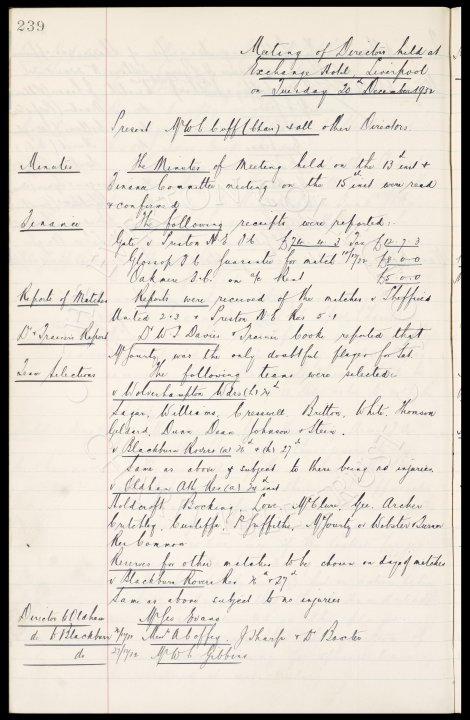 239
Meeting of Directors held at
Exchange Hotel Liverpool
on Tuesday 20th December 1932
Present Mr W C Cuff (Chair) & all other Directors.
Minutes The Minutes of Meeting held on the 13th inst &
Finance Committee meeting on the 15th inst were read
& confirmed
Finance The following receipts were reported:-
Gate v Preston N E Tax
Glossop F.C. Guarantee for match £8.0.0
Oakmere F.C. on a/c Rent £5.0.0
Reports of Matches Reports were received of the matches v Sheffield
United 2.3 & Preston N E Res 5.1
Dr & Trainers Report Dr W J Davies & Trainer Cooke reported that
McGourty was the only doubtful player for Sat.
Team Selections The following teams were selected:-
v Wolverhampton Wdrs (h) 24th
Sagar, Williams, Cresswell Britton, White, Thomson
Geldard, Dunn, Dean, Johnson & Stein.
v Blackburn Rovers (a) 26th & (h) 27th
Same as above & subject to there being no injuries
v Oldham Ath Res (a) 24th inst
Holdcroft Bocking, Lowe, McClure, Gee, Archer
Critchley, Cunliffe, Griffiths, McGourty or Webster & Turner
Res Common
Reserves for other matches to be chosen on day of matches
v Blackburn Rovers Res 26th & 27th
Same as above subject to no injuries
Director to Oldham Mr Geo Evans
do to Blackburn Messrs A Coffey, J Sharp & Dr Baxter
do 27/12/32 Mr W C Gibbins